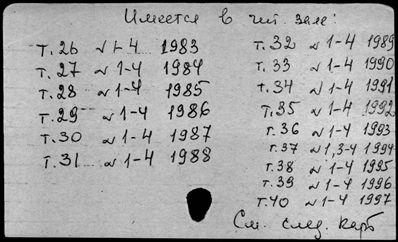 Имеется в чит. зале:
т.26 № 1-4 1983
т.27 № 1-4 1984
т.28 № 1-4 1985
т.29 № 1-4 1986
т.30 № 1-4 1987
т.31 № 1-4 1988
т.32 № 1-4 1989
т.33 № 1-4 1990
т.34 № 1-4 1991
т.35 № 1-4 1992
т.36 № 1-4 1993
т.37 № 1,3-4 1994
т.38 № 1-4 1995
т.39 № 1-4 1996
т.40 № 1-4 1997
См. след. карт